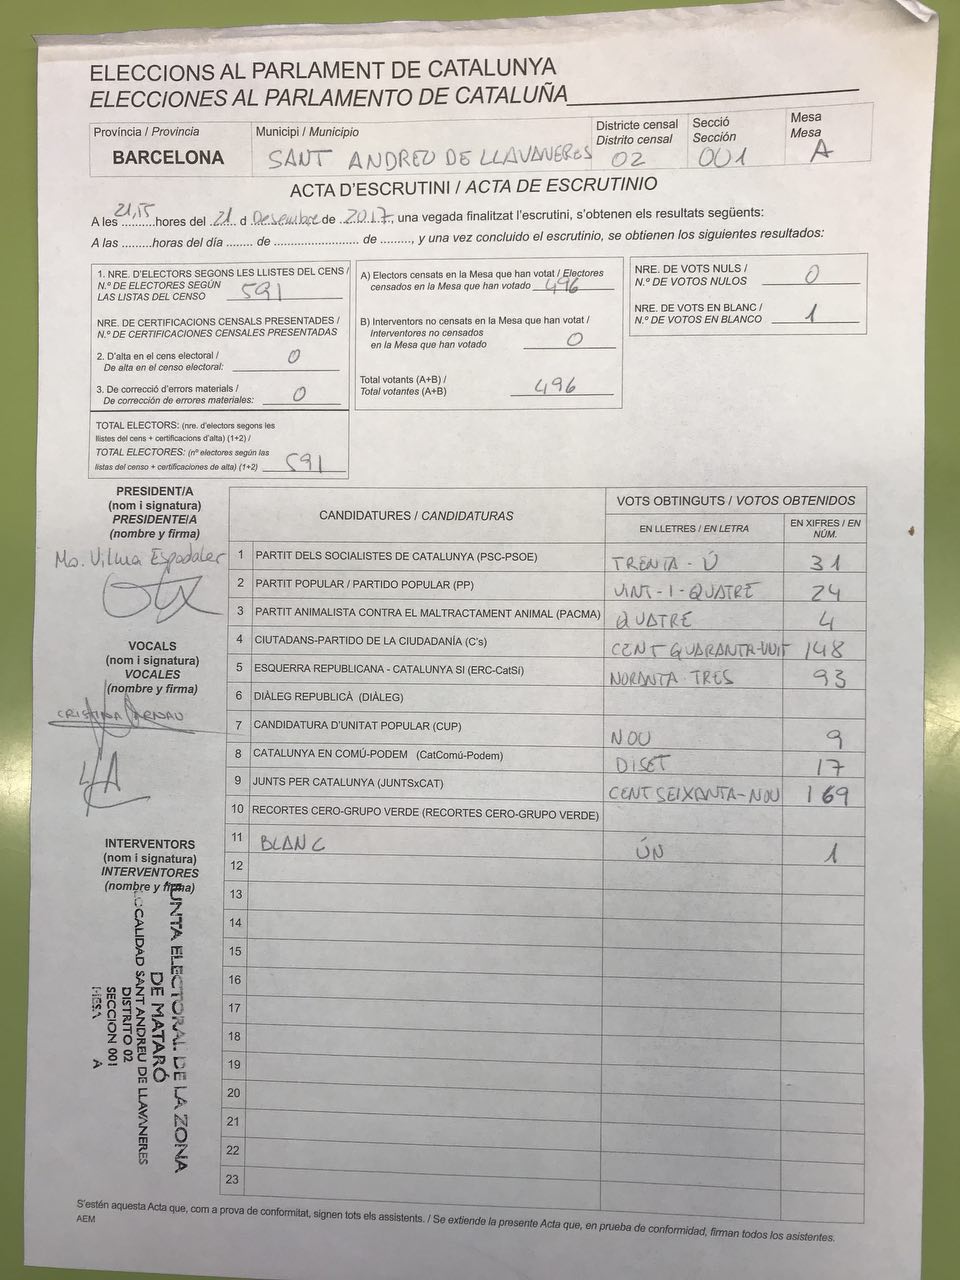 ELECCIONS AL PARLAMENT DE CATALUNYA
ELECCIONES AL PARLAMENTO DE CATALUÑA
Província / Provincia
BARCELONA
Municipi / Municipio
SANT ANDREU DE LLAVANERES
Districte censal
Distrito censal
02
Secció
Sección
001
Mesa
Mesa
A
ACTA D'ESCRUTINI / ACTA DE ESCRUTINIO
A les 21,15 hores del 21 d Desembre de 2017, una vegada finalitzat l'escrutini, s'obtenen els resultats següents:
A las .........horas del día ........ de ......................... de ........., y una vez concluido el escrutinio, se obtienen los siguientes resultados:
1. NRE. D'ELECTORS SEGONS LES LLISTES DEL CENS /
N.º DE ELECTORES SEGÚN
LAS LISTAS DEL CENSO 591
NRE. DE CERTIFICACIONS CENSALS PRESENTADES /
N.º DE CERTIFICACIONES CENSALES PRESENTADAS
2. D'alta en el cens electoral /
De alta en el censo electoral: 0
3. De correcció d'errors materials /
De corrección de errores materiales: 0
TOTAL ELECTORS: (nre. d'electors segons les
llistes del cens + certificacions d'alta) (1+2) /
TOTAL ELECTORES: (nº electores según las
listas del censo + certificaciones de alta) (1+2) 591
A) Electors censats en la Mesa que han votat / Electores
censados en la Mesa que han votado 496
B) Interventors no censats en la Mesa que han votat /
Interventores no censados
en la Mesa que han votado 0
Total votants (A+B) /
Total votantes (A+B) 496
NRE. DE VOTS NULS /
N.º DE VOTOS NULOS 0
NRE. DE VOTS EN BLANC /
N.º DE VOTOS EN BLANCO 1
PRESIDENT/A
(nom i signatura)
PRESIDENTE/A
(nombre y firma)
Ma. Vilma Espadaler
VOCALS
(nom i signatura)
VOCALES
(nombre y firma)
CRISTINA
INTERVENTORS
(nom i signatura)
INTERVENTORES
(nombre y firma)
JUNTA ELECTORAL DE LA ZONA
DE MATARÓ
LOCALIDAD SANT ANDREU DE LLAVANERES
DISTRITO 02
SECCION 001
MESA A
CANDIDATURES / CANDIDATURAS
VOTS OBTINGUTS / VOTOS OBTENIDOS
EN LLETRES / EN LETRA
EN XIFRES / EN NÚM.
1 PARTIT DELS SOCIALISTES DE CATALUNYA (PSC-PSOE) TRENTA-Ú 31
2 PARTIT POPULAR / PARTIDO POPULAR (PP) VINT-I-QUATRE 24
3 PARTIT ANIMALISTA CONTRA EL MALTRACTAMENT ANIMAL (PACMA) QUATRE 4
4 CIUTADANS-PARTIDO DE LA CIUDADANÍA (C's) CENT QUARANTA-VUIT 148
5 ESQUERRA REPUBLICANA - CATALUNYA SI (ERC-CatSí) NORANTA TRES 93
6 DIÀLEG REPUBLICÀ (DIÀLEG)
7 CANDIDATURA D'UNITAT POPULAR (CUP) NOU 9
8 CATALUNYA EN COMÚ-PODEM (CatComú-Podem) DISET 17
9 JUNTS PER CATALUNYA (JUNTSxCAT) CENT SEIXANTA-NOU 169
10 RECORTES CERO-GRUPO VERDE (RECORTES CERO-GRUPO VERDE)
11 BLANC ÚN 1
12
13
14
15
16
17
18
19
20
21
22
23
S'estén aquesta Acta que, com a prova de conformitat, signen tots els assistents. / Se extiende la presente Acta que, en prueba de conformidad, firman todos los asistentes.
AEM